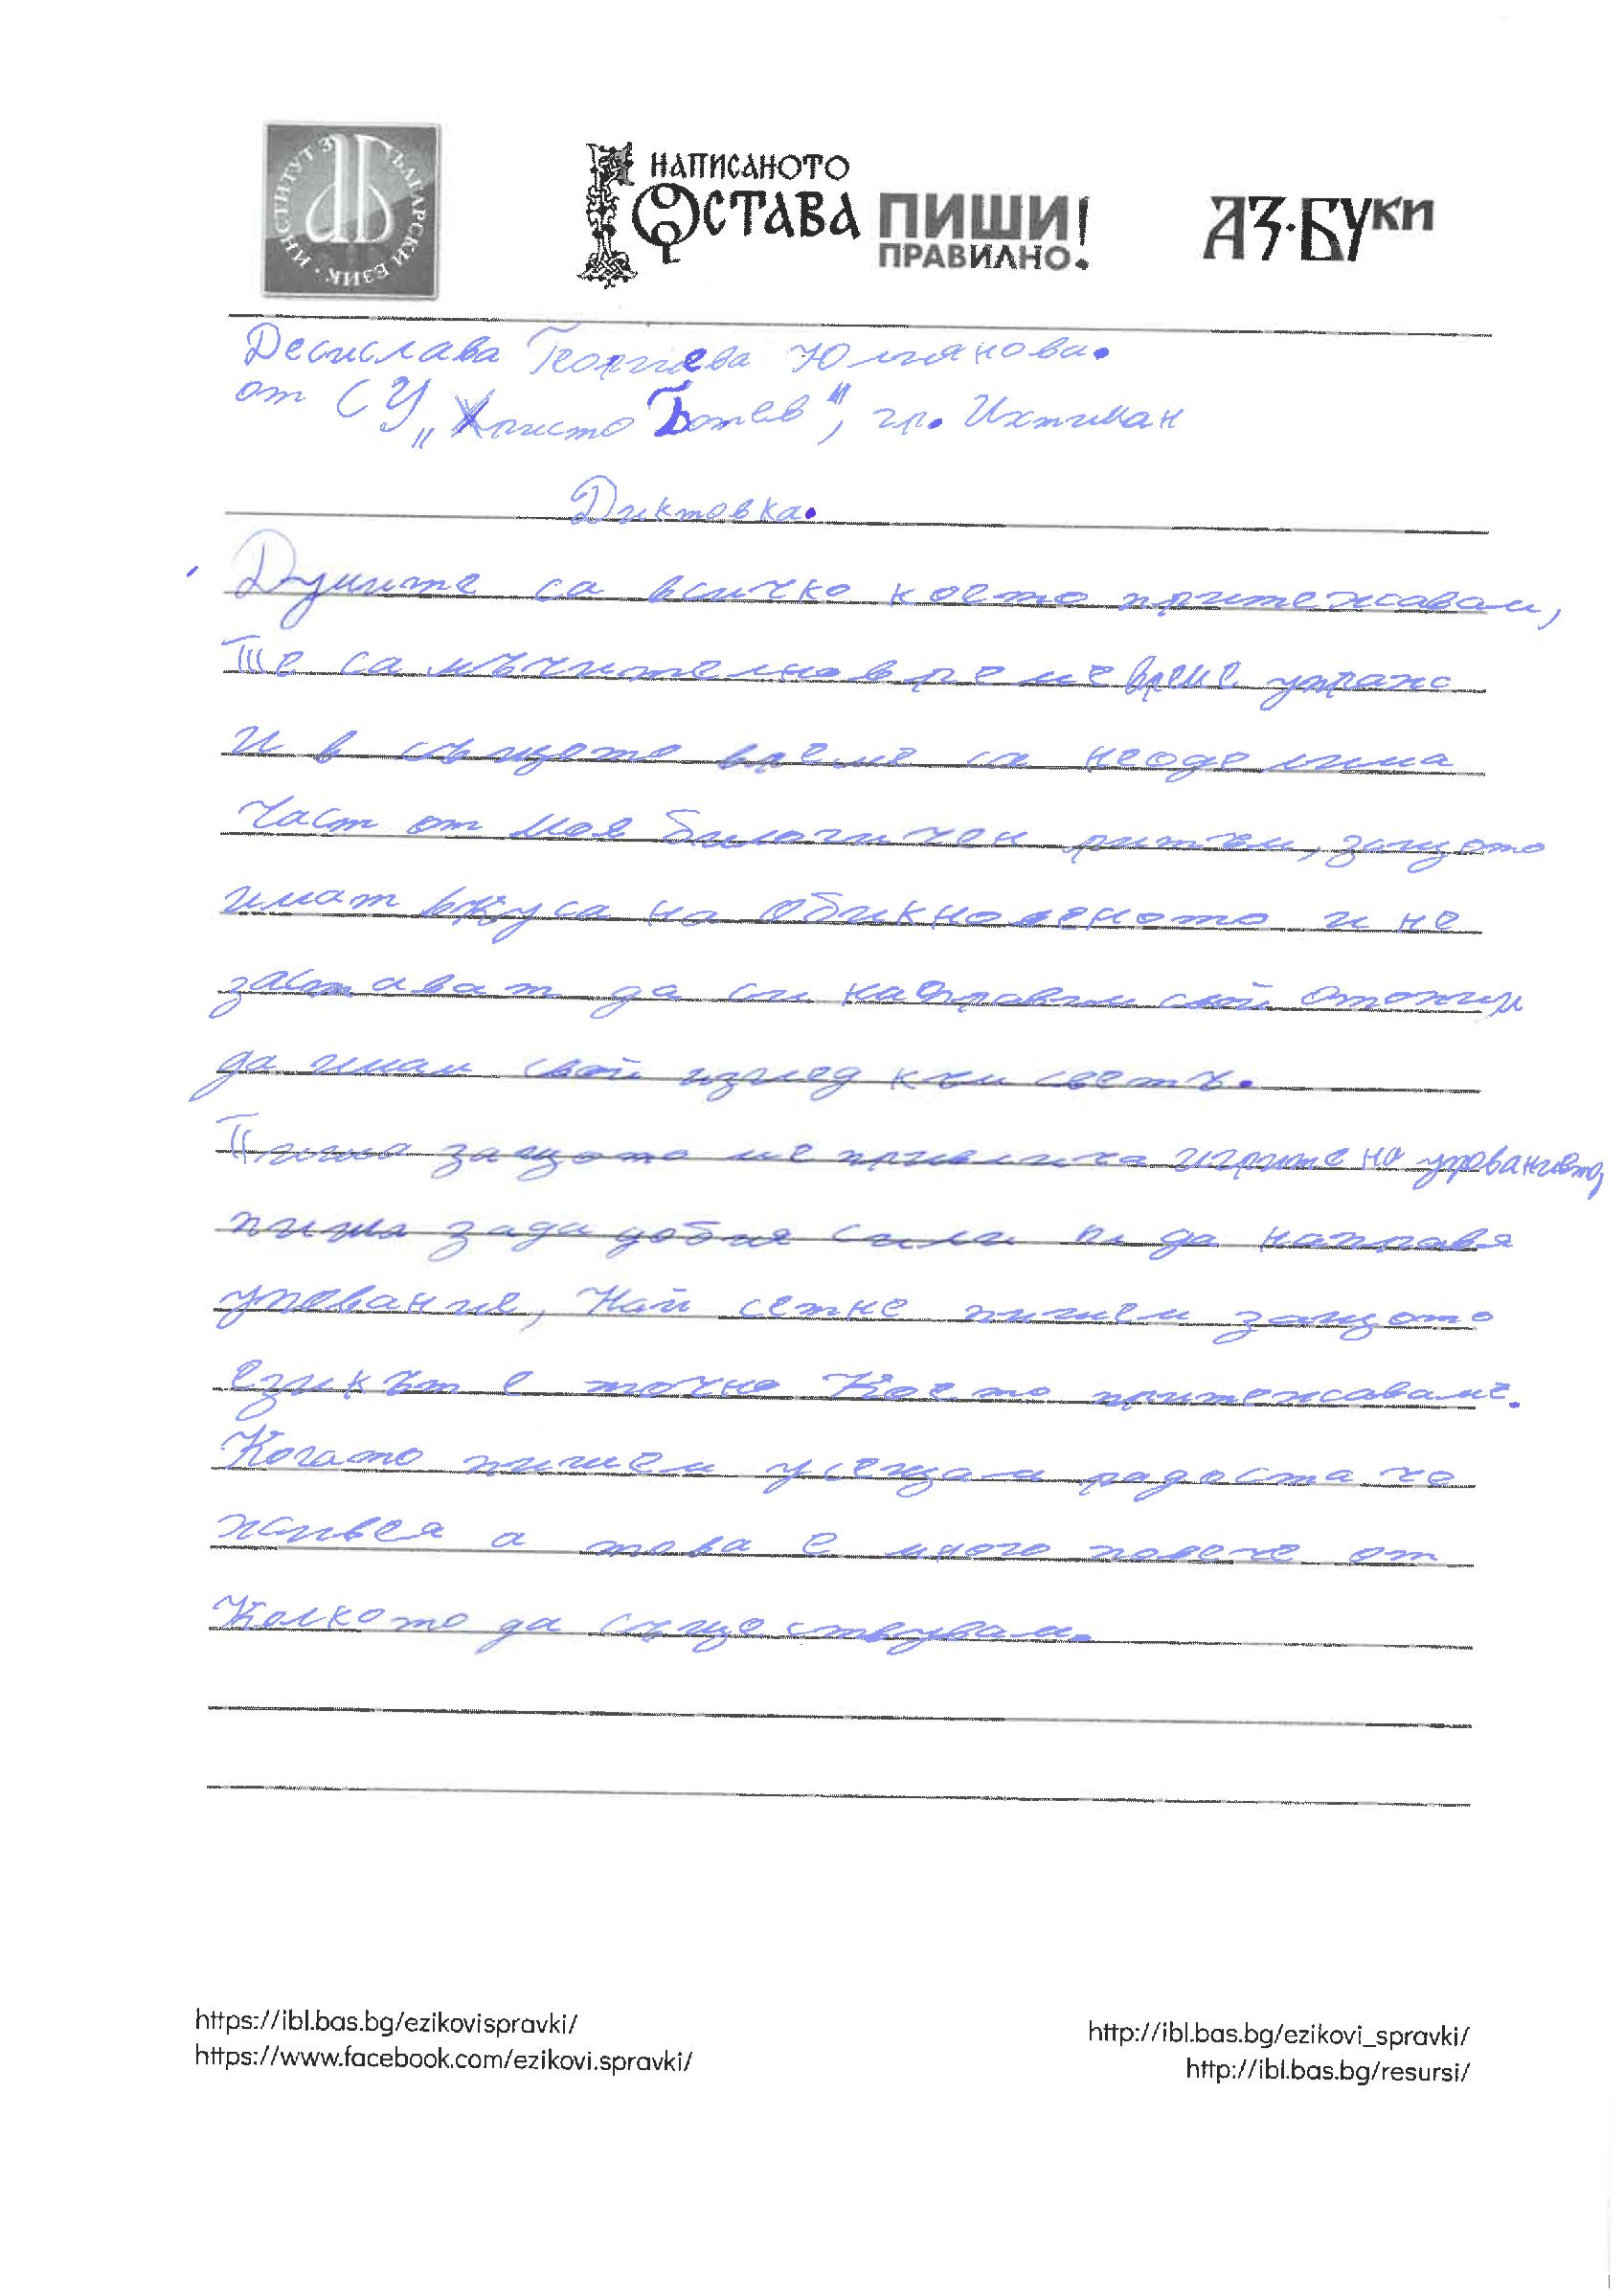 ИНСТИТУТ ЗА БЪЛГАРСКИ ЕЗИК
НАПИСАНОТО ОСТАВА ПИШИ ПРАВИЛНО!
АЗ·БУКИ
Десислава Георгиева Юлиянова.
от СУ „Христо Ботев", гр. Ихтиман
Диктовка.
Думите са всичко което притежавам,
Те са мъчително време време
и в същото време са неоделима
част от моя биологичен ритъм, защото
имат вкуса на обикновеното и не
застават да си направим свой
да имам свой изглед към светъ.
Пиша защото ме привлича игрите на
пиша зада добия сили да направя
упование, Най сетне пишем защото
езикът е точно Което притежаваме.
Когато пишем усещам радоста че
живея а това е много повече от
Колкото да съществувам.
https://ibl.bas.bg/ezikovispravki/
https://www.facebook.com/ezikovi.spravki/
http://ibl.bas.bg/ezikovi_spravki/
http://ibl.bas.bg/resursi/